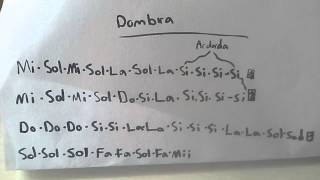 Dombra
Ardarda
Mi-Sol-Mi-Sol-La-Sol-La-Si-Si-Si-Si
Mi-Sol-Mi-Sol-Do-Si-La-Si-Si-Si-Si
Do-Do-Do-Si-Si-La-La-Si-Si-Si-La-La-Sol-Sol
Sol-Sol-Sol-Fa-Fa-Sol-Fa-Mii